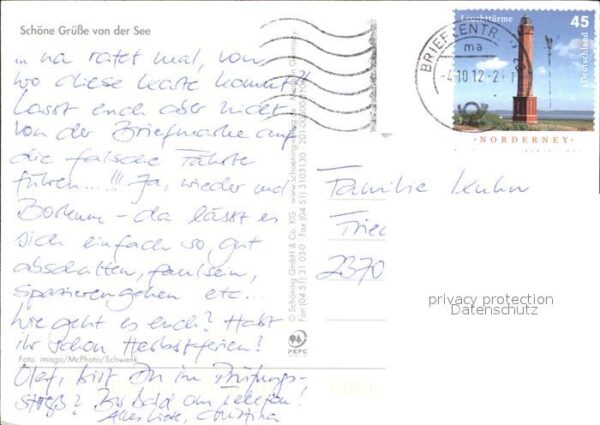 Schöne Grüße von der See
... na ratet mal, von
wo diese Karte kommt?!
Lasst euch aber nicht
von der Briefmarke auf
die falsche Fährte
führen...!!! Ja, wieder mal
Borkum - da lässt es
sich einfach so gut
abschalten, faulsein,
spazierengehen etc...
Wie geht es euch? Habt
ihr schon Herbstferien?
Foto: imago/McPhoto/Schwenk
Olaf, bist Du im Prüfungs-
streß? Bis bald am Telefon!
Alles Liebe, Christina
© Schöning GmbH & Co. KG
Fon (04 51) 31 03-0 Fax (04 51) 3103130
PEFC
BRIEFZENTR
ma
-4.10.12-2
Leuchttürme
45
Deutschland
NORDERNEY
Familie Kuhn
Frie
2370
privacy protection
Datenschutz